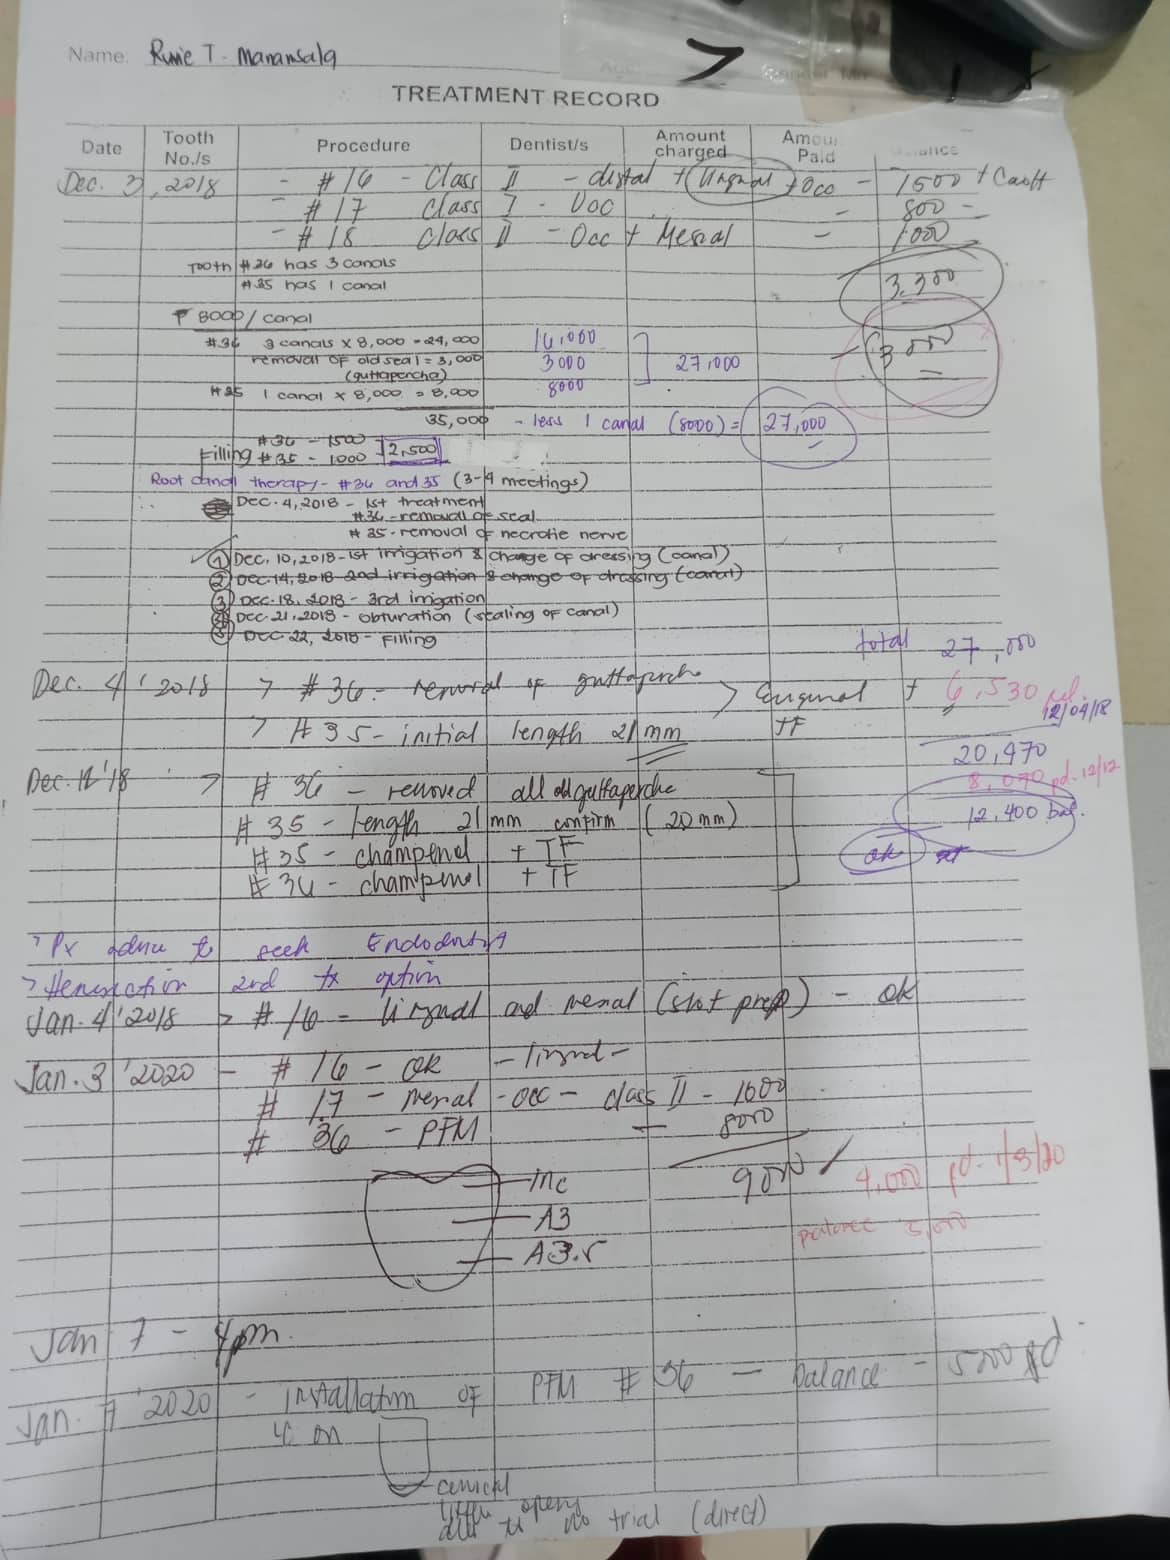 Name: Runie T. Manansala
TREATMENT RECORD
Date Tooth No./s Procedure Dentist/s Amount charged Amou Paid
Dec. 3, 2018 - #16 - Class II - distal + lingual + Occ - 1500 + Caoh
- #17 Class I - Occ - 800 -
- #18 Class II - Occ + Mesial - 1000
3,300
Tooth #36 has 3 canals
#35 has 1 canal
₱ 8000/canal
#36 3 canals x 8,000 = 24,000 16,000
removal of old seal = 3,000 3000 27,000 - 3,000
(guttapercha)
#35 1 canal x 8,000 = 8,000 8000
35,000 - less 1 canal (8000) = 27,000
Filling #36 - 1500 2,500
#35 - 1000
Root canal therapy - #36 and 35 (3-4 meetings)
Dec. 4, 2018 - 1st treatment
#36 - removal of seal
#35 - removal of necrotic nerve
① Dec. 10, 2018 - 1st irrigation & change of dressing (canal)
② Dec. 14, 2018 2nd irrigation & change of dressing (canal)
③ Dec. 18, 2018 - 3rd irrigation
④ Dec 21, 2018 - obturation (sealing of canal)
⑤ Dec 22, 2018 - Filling
total 27,000
Dec. 4 '2018 > #36 - removal of guttaperche > Euginol + 6,530 pd. 12/04/18
> #35 - initial length 21 mm TF
20,470
Dec. 12 '18 > #36 - removed all old guttaperche 8,070 pd. 12/12
#35 - length 21 mm confirm (20 mm) 12,400 bal.
#35 - champenol + TF ok
#36 - champenol + TF
> Px advice to seek Endodontist
> Hemisection 2nd tx option
Jan. 4 '2018 > #16 - lingual and mesial (slot prep) - ok
Jan. 3 '2020 - #16 - ok - lingual -
#17 - mesial - occ - class II - 1000
#36 - PFM - 8000
9000 / 4,000 pd. 1/3/20
Inc
A3 balance 5,000
A3.5
Jan 7 - 4pm.
Jan. 7 '2020 - Installation of PFM #36 - balance - 5000 pd
cervical
no trial (direct)